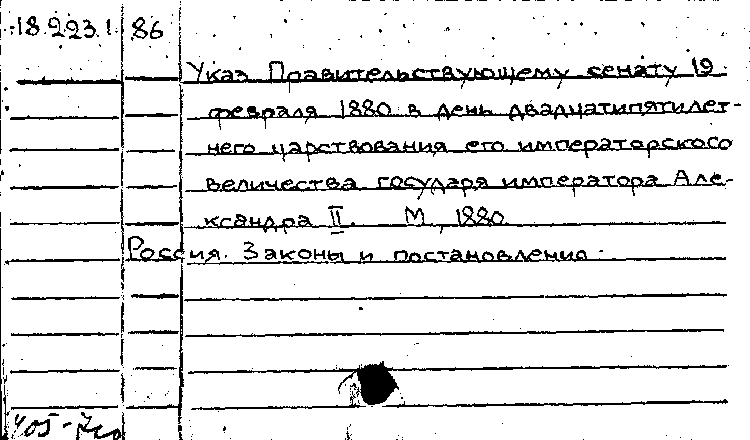 18.223.1. 86
Указ Правительствующему сенату 19
февраля 1880 в день двадцатипятилет-
него царствования его императорского
величества государя императора Але-
ксандра II. М., 1880
Россия. Законы и постановления.
405-